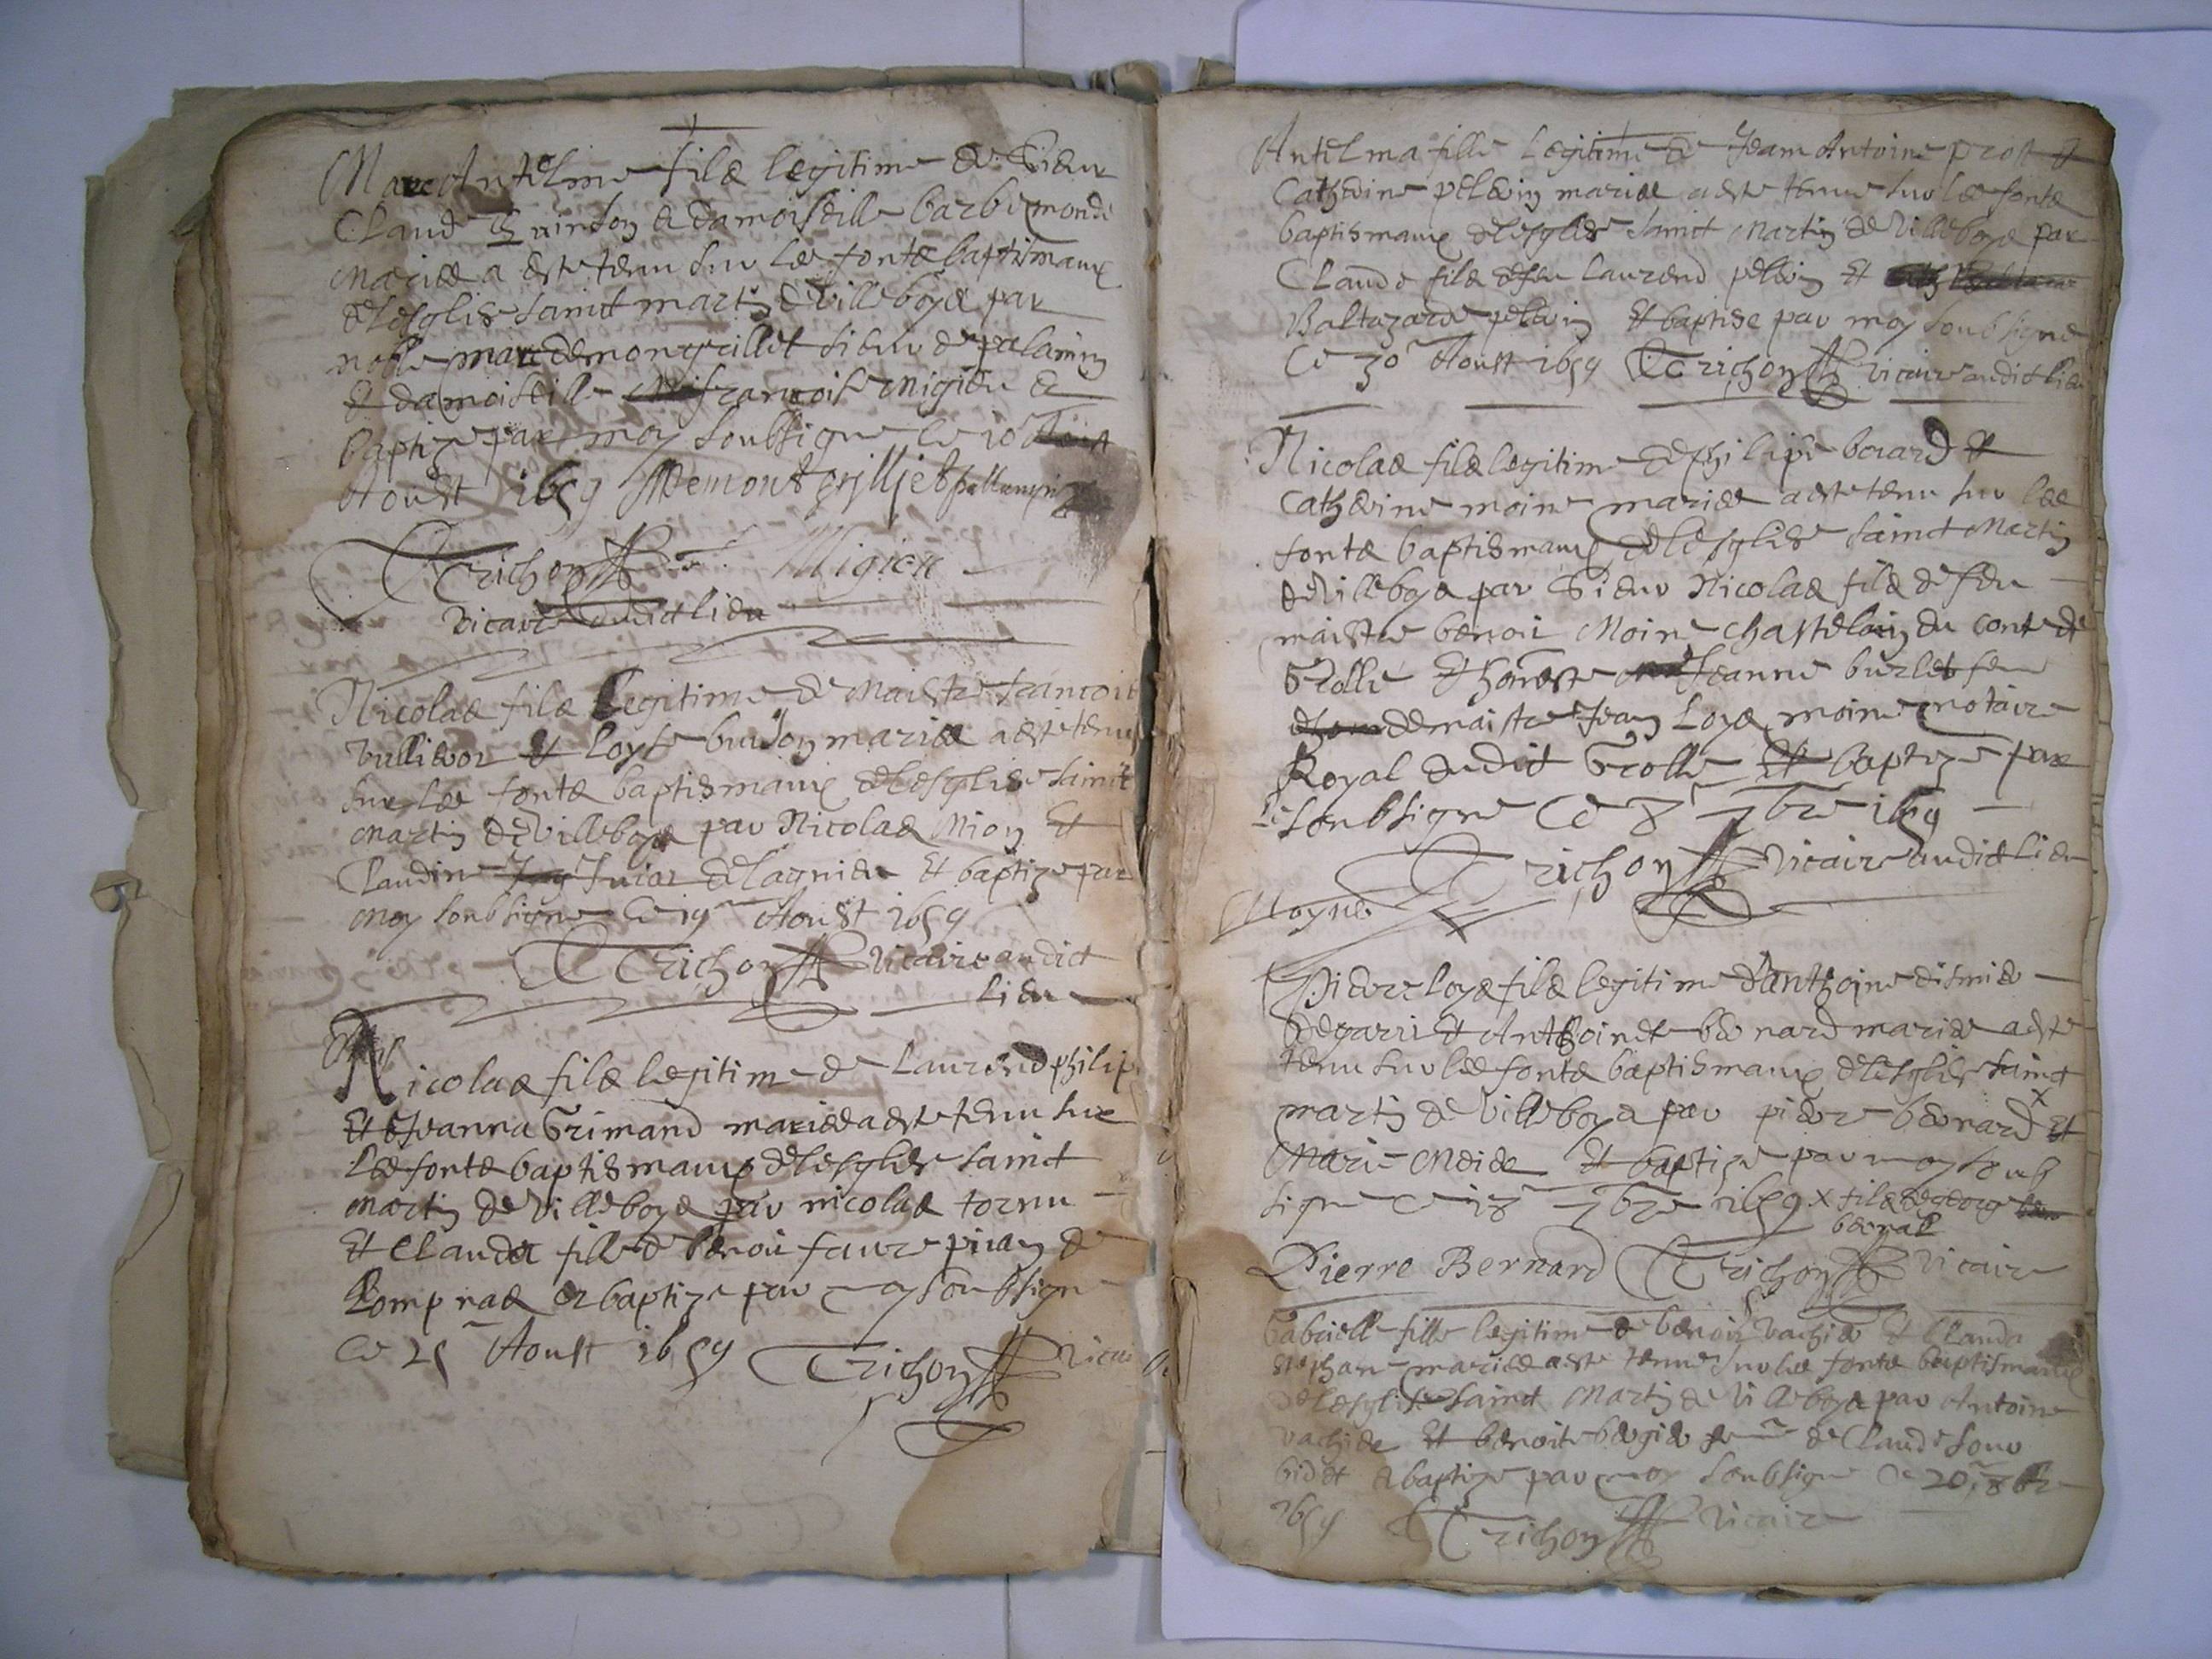 Marc Antelme filz legitime de Sieur
Claud Guindon et damoiselle barbe monde
Mariez a este tenu sur les fontz baptismaux
de lesglise sainct martin de villeboys par
noble marc de mongrillet sieur de palamin
et damoiselle françoise migieu et
baptize par moy soubsigne ce 10
Aoust 1659 Demontgrilliet pallamyn
Trichon Migieu
vicaire dudict lieu
Nicolas filz legitime de Maistre françois
vullieror et loyse buison mariez a este tenu
sur les fontz baptismaux de lesglise sainct
martin de villeboys par Nicolas Mion et
Claudine Juiar de lagnieu et baptize par
moy soubsigne ce 19 Aoust 1659
Trichon vicaire audict
lieu
Nicolas filz legitime de Laurend philip
et Jeanna Grimand mariez a este tenu sur
les fontz baptismaux de lesglise sainct
martin de villeboys par nicolas tornu
et Clauda fille de benoit faure
et baptize par moy soubsigne
ce 25 Aoust 1659 Trichon vicai
Antelma fille legitime de Jean Antoine prost et
Catherine pelletin mariez a este tenue sur les fontz
baptismaux de lesglise sainct Martin de villeboys par
Claude filz de feu laurend et
Baltazarde et baptise par moy soubsigne
ce 30 Aoust 1659 Trichon vicaire audict lieu
Nicolas filz legitime de philipe borard et
Catherine moine mariez a este tenu sur les
fontz baptismaux de lesglise sainct Martin
de villeboys par Sieur Nicolas filz de feu
maistre benoit Moine chastelain du conte de
Grolle et honeste Jeanne burlet fem
de maistre Jean Loys moine notaire
Royal dudict Grolle et baptize par
le soubsigne ce 8 7bre 1659
Trichon vicaire audict lieu
Moyne
Pierre loys filz legitime danthoine
et Anthoinete bernard mariez a este
tenu sur les fontz baptismaux de lesglise sainct
martin de villeboys par pierre bernard x et
Marie et baptize par moy soub
signe ce 18 7bre 1659 x filz de george
bernard
Pierre Bernard Trichon vicaire
Gabrielle fille legitime de benoit vachier et Clauda
stephane mariez a este tenue sur les fontz baptismaux
de lesglise sainct Martin de villeboys par Antoine
vachier et benoite bergier fe de Claude
et baptize par moy soubsigne ce 20 8bre
1659 Trichon vicaire